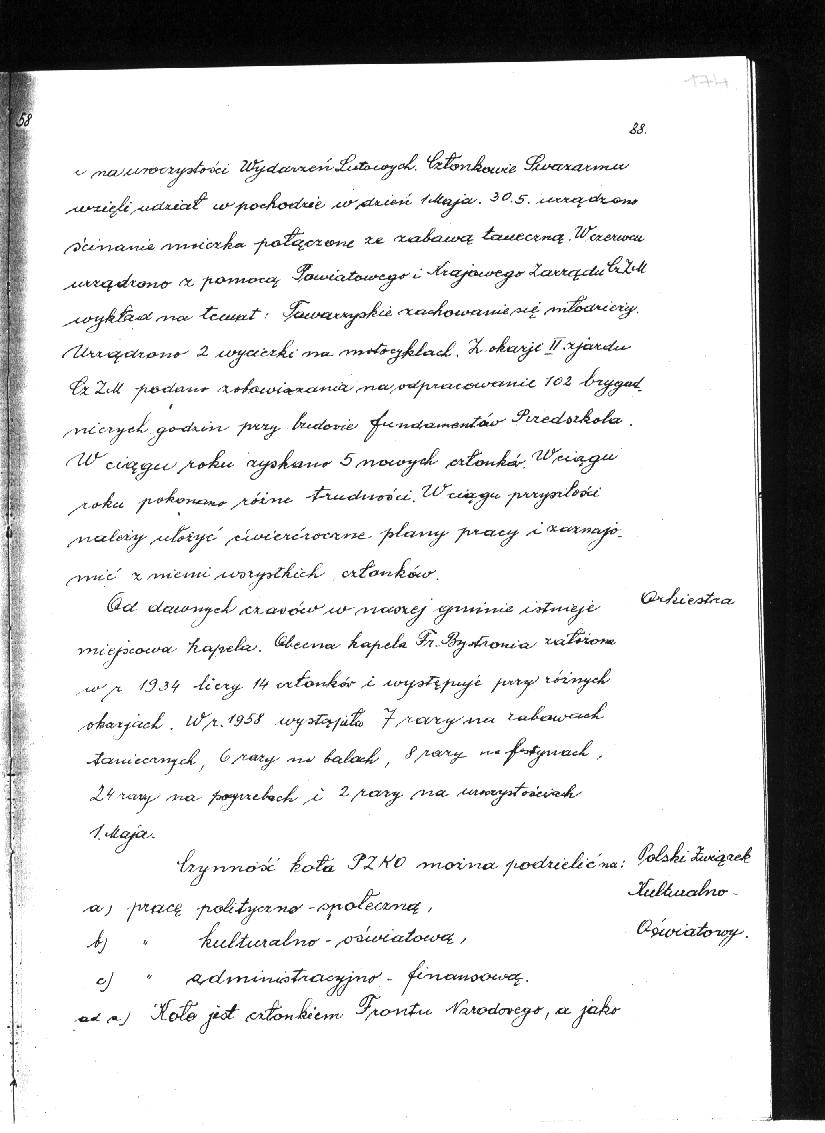 174
58
88.
i na uroczystości Wydarzeń Lutowych. Członkowie Swazarmu
wzięli udział w pochodzie w dzień 1 Maja. 30.5. urządzono
ścinanie moiczka połączone ze zabawą taneczną. W czerwcu
urządzono z pomocą Powiatowego i Krajowego Zarządu CzZM
wykład na temat: Towarzyskie zachowanie się młodzieży.
Urządzono 2 wycieczki na motocyklach. Z okazji II. zjazdu
CzZM podano zobowiązania na odpracowanie 102 brygad-
niczych godzin przy budowie fundamentów Przedszkola.
W ciągu roku zyskano 5 nowych członków. W ciągu
roku pokonano różne trudności. W ciągu przyszłości
należy ułożyć ćwierćroczne plany pracy i zaznajo-
mić z niemi wszystkich członków.
Od dawnych czasów w naszej gminie istnieje
Orkiestra
miejscowa kapela. Obecna kapela Fr. Bystronia założona
w r. 1934 liczy 14 członków i występuje przy różnych
okazjach. W r. 1958 wystąpiła 7 razy na zabawach
tanecznych, 6 razy na balach, 8 razy na festynach,
24 razy na pogrzebach i 2 razy na uroczystościach
1. Maja.
Czynność koła PZKO można podzielić na:
Polski Związek
Kulturalno-
Oświatowy.
a) pracę polityczno-społeczną,
b) " kulturalno-oświatową,
c) " administracyjno-finansową.
ad a) Koło jest członkiem Frontu Narodowego, a jako